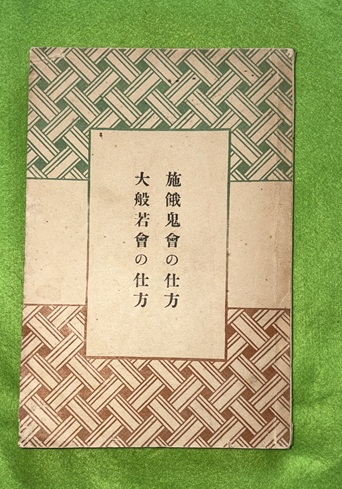 施餓鬼會の仕方
大般若會の仕方